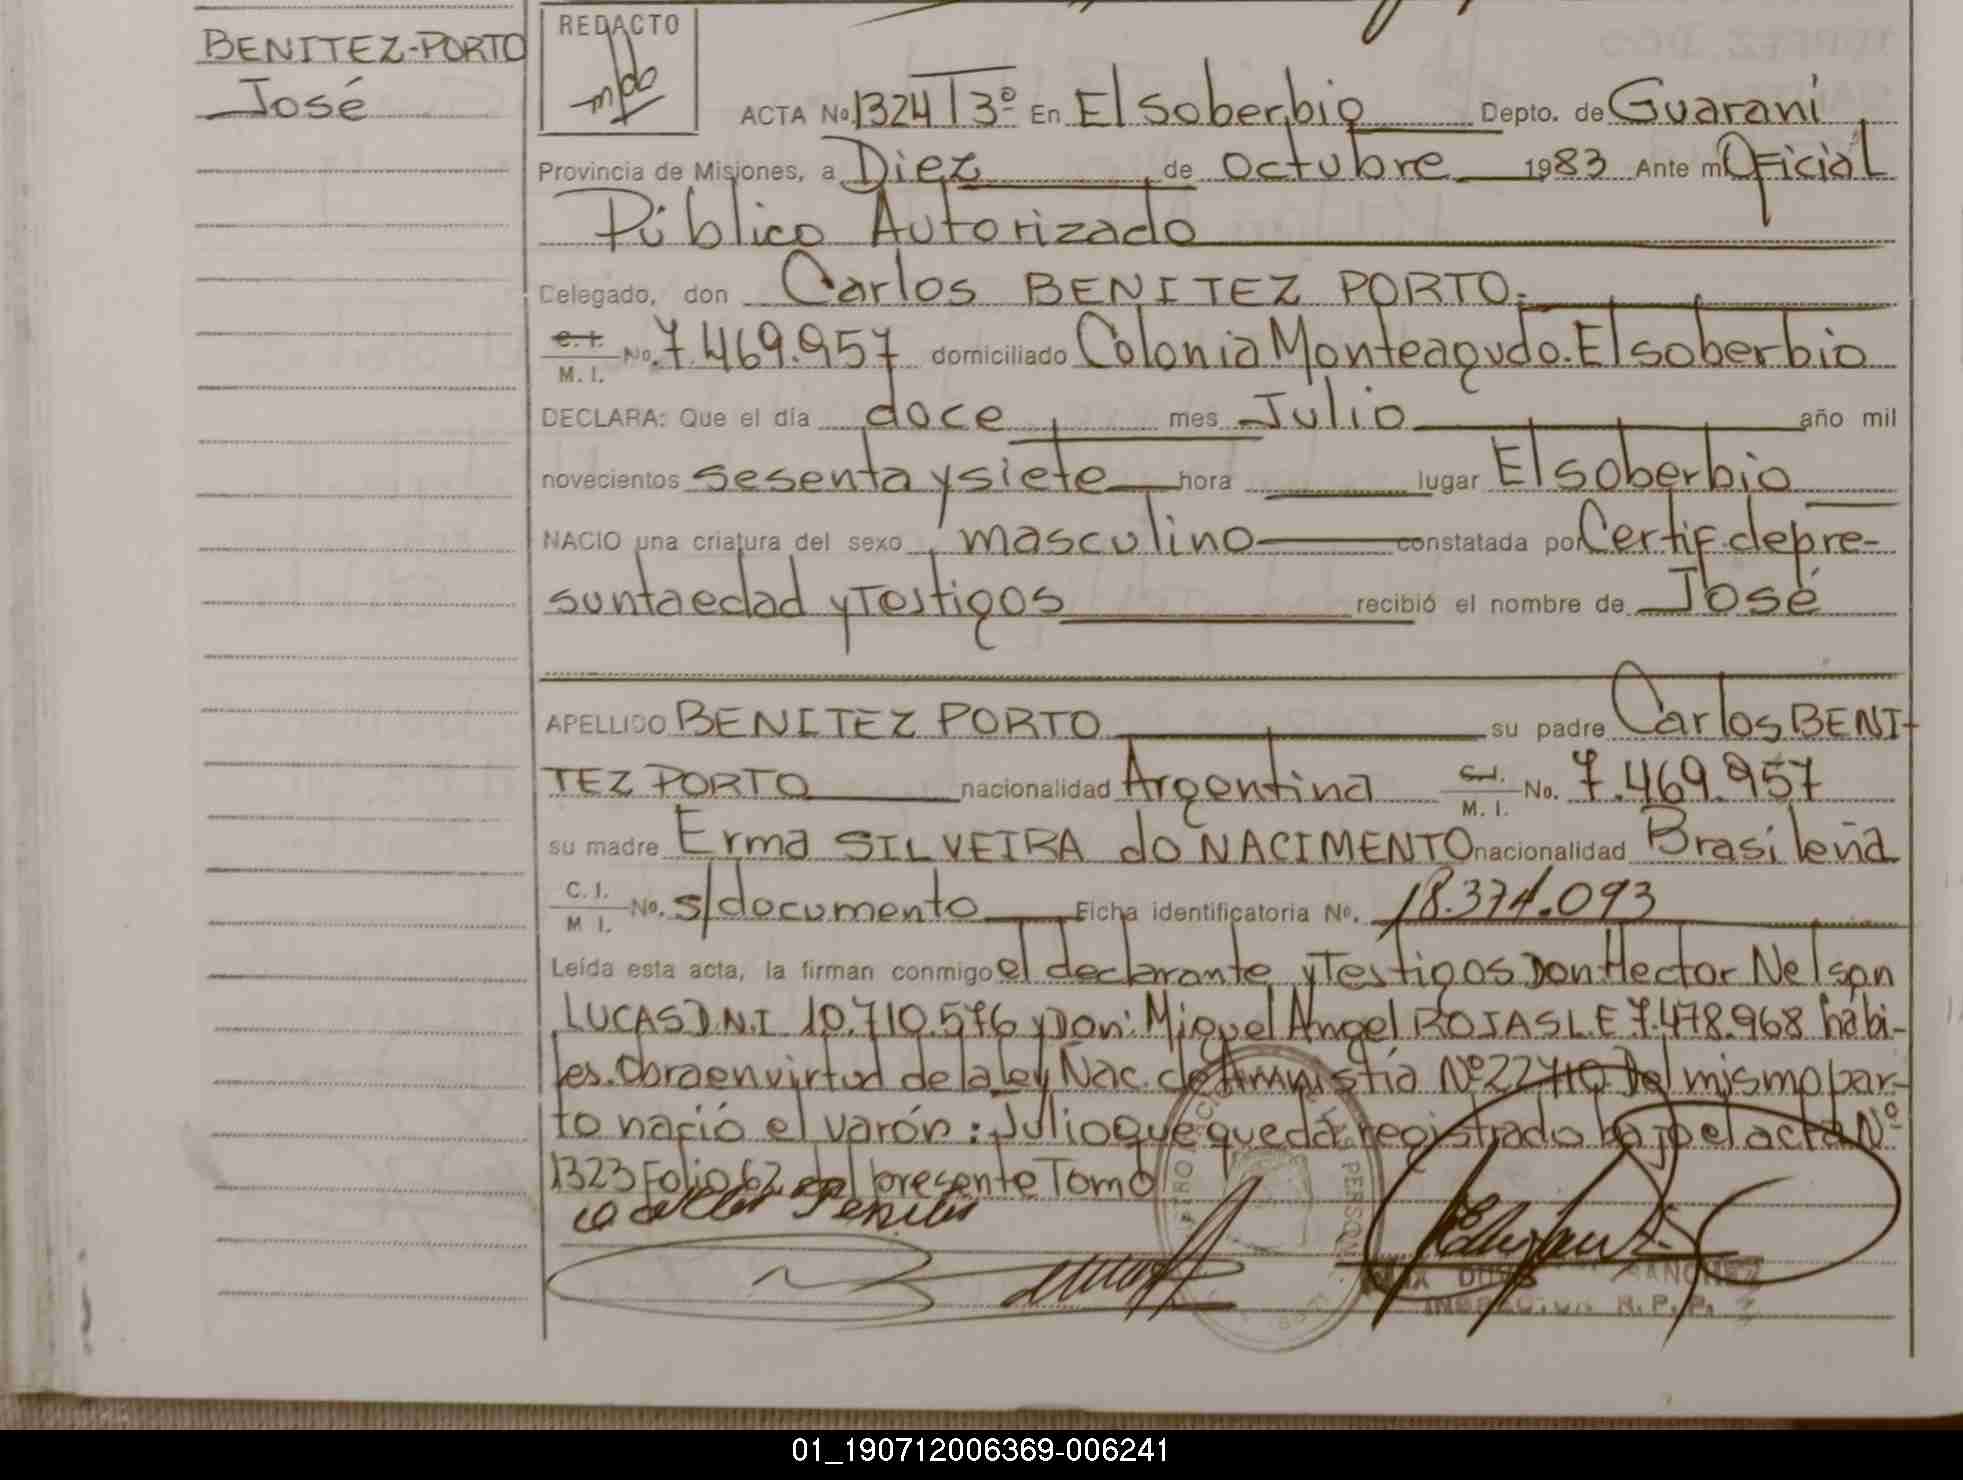 BENITEZ-PORTO
José
REDACTO
ACTA No. 1324 T3º En El soberbio Depto. de Guaraní
Provincia de Misiones, a Diez de octubre 1983 Ante mi Oficial
Público Autorizado
Delegado, don Carlos BENITEZ PORTO.
C. I. M. I. No. 7.469.957 domiciliado Colonia Monteagudo. El soberbio
DECLARA: Que el día doce mes Julio año mil
novecientos sesenta y siete hora lugar El soberbio
NACIO una criatura del sexo masculino constatada por Certif. de pre-
sunta edad y Testigos recibió el nombre de José
APELLIDO BENITEZ PORTO su padre Carlos BENI-
TEZ PORTO nacionalidad Argentina C.I. M. I. No. 7.469.957
su madre Erma SILVEIRA do NACIMENTO nacionalidad Brasileña
C. I. M I. No. s/documento Ficha identificatoria No. 18.374.093
Leída esta acta, la firman conmigo el declarante y Testigos Don Hector Nelson
LUCAS D.N.I 10.710.576 y Don: Miguel Angel ROJAS L.E 7.478.968 hábi-
les. Obra en virtud de la ley Nac. de Amnistía Nº 22410 Del mismo par-
to nació el varón: Julio que queda registrado bajo el acta Nº
1323 Folio 62 del presente Tomo
SANCHEZ
R. P. P.
01_190712006369-006241